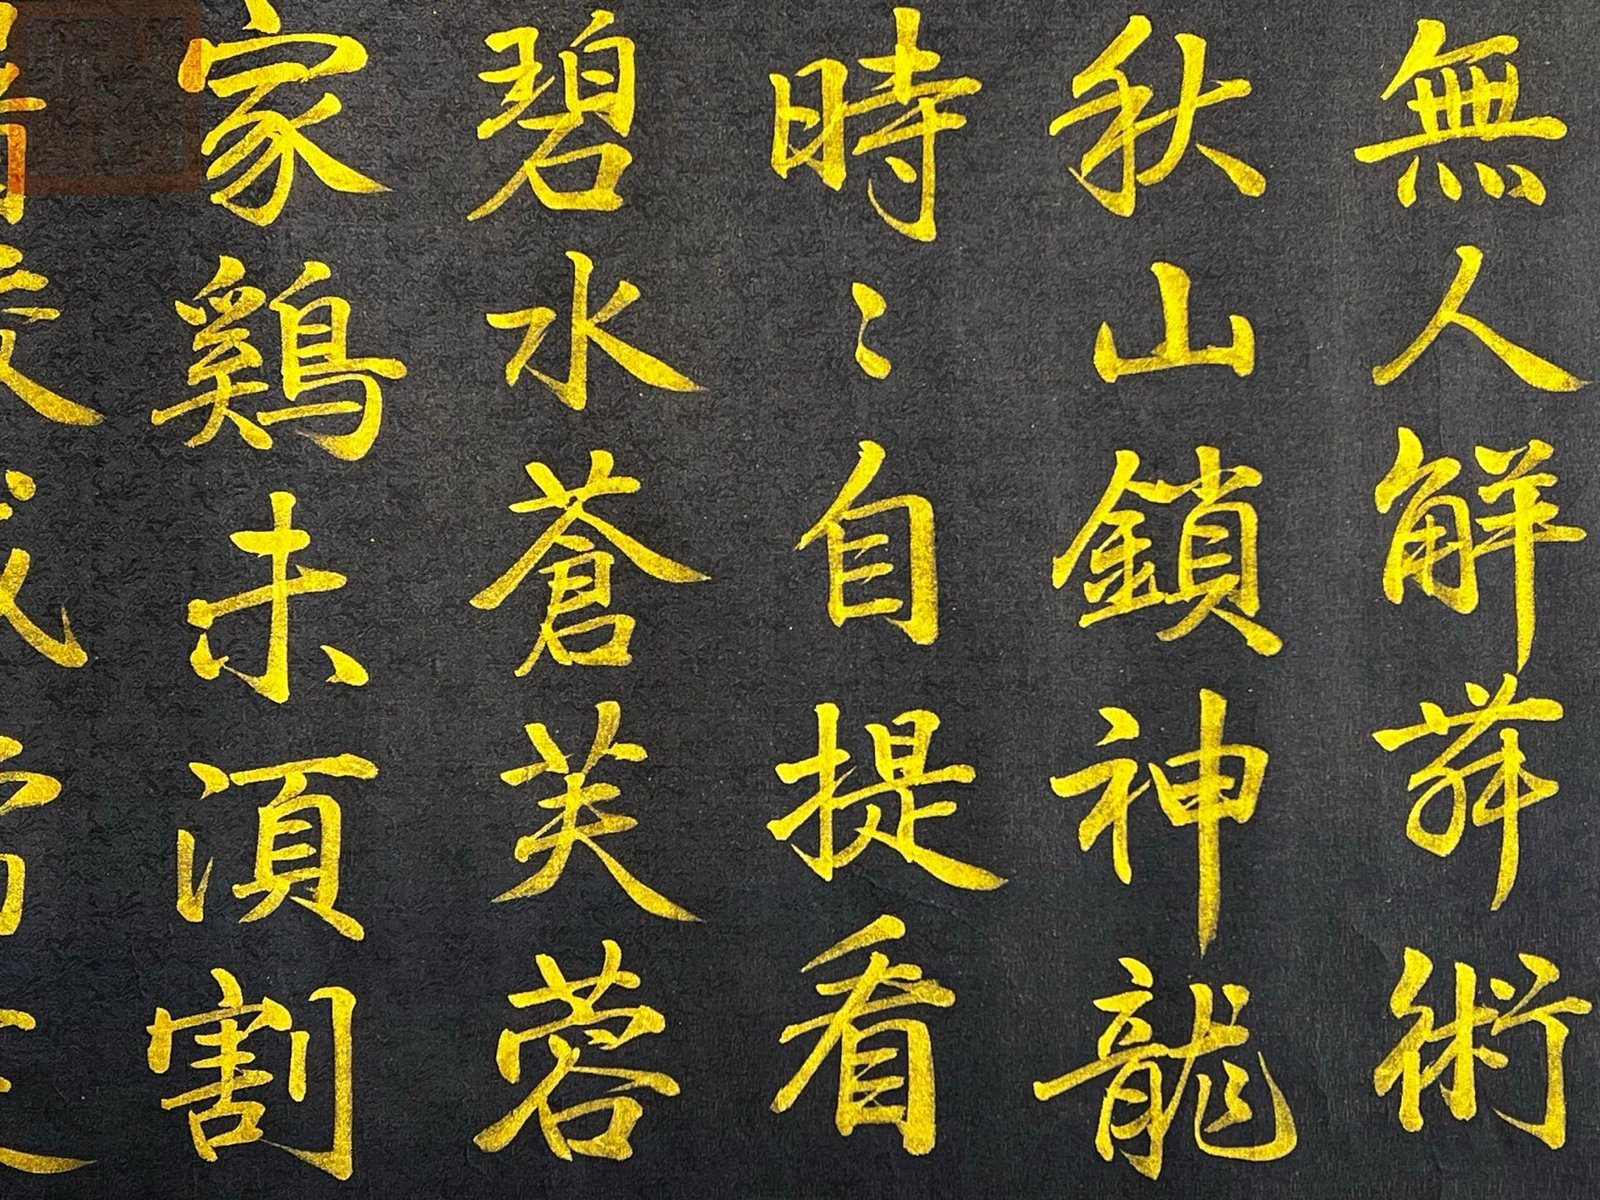 無人觧舞術
秋山鎖神龍
時〻自提看
碧水蒼芙蓉
家鷄未湏割